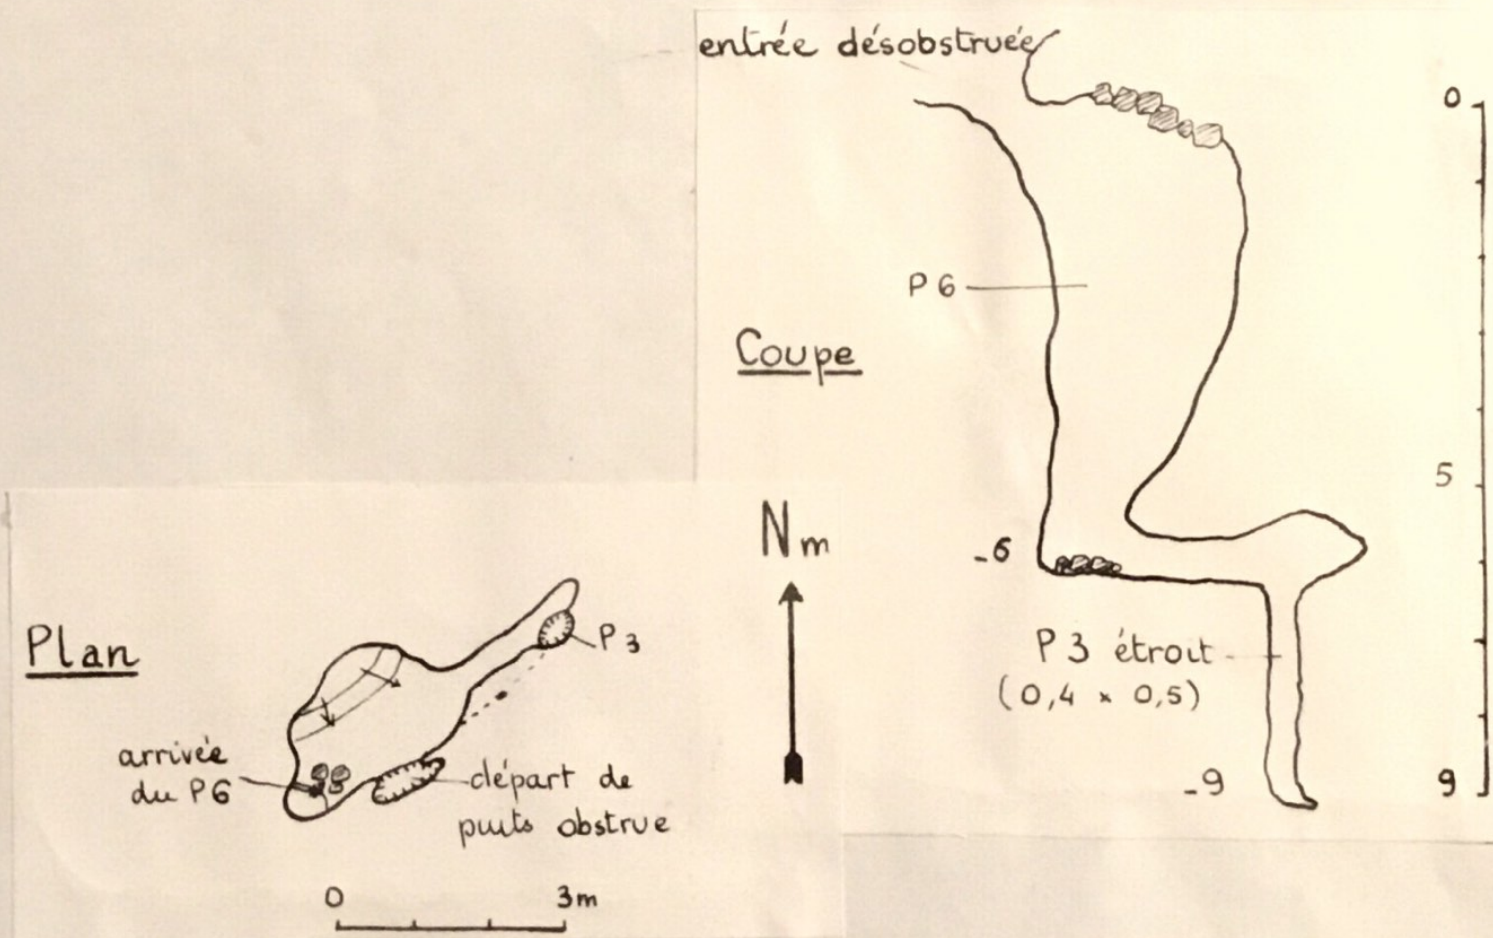 entrée désobstruée
0
P 6
Coupe
5
-6
P 3 étroit
(0,4 x 0,5)
-9
9
Nm
Plan
P 3
arrivée
du P6
départ de
puits obstrue
0
3m